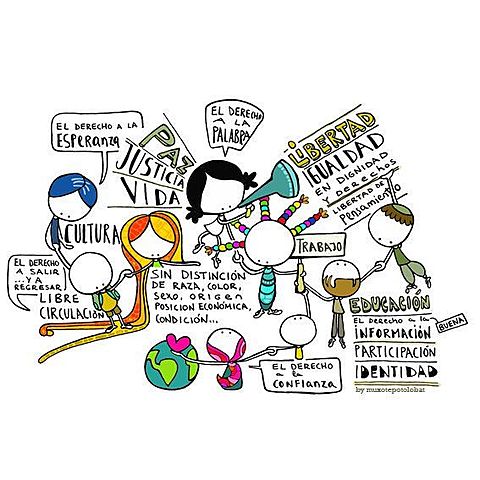 EL DERECHO A LA
ESPERANZA
PAZ
JUSTICIA
VIDA
EL DERECHO
A LA
PALABRA
LIBERTAD
IGUALDAD
EN DIGNIDAD
Y DERECHOS
LIBERTAD DE
PENSAMIENTO
CULTURA
EL DERECHO
A SALIR
...Y A
REGRESAR
LIBRE
CIRCULACIÓN
SIN DISTINCIÓN
DE RAZA, COLOR,
SEXO, ORIGEN
POSICION ECONÓMICA,
CONDICIÓN...
TRABAJO
EDUCACIÓN
EL DERECHO A LA
BUENA
INFORMACIÓN
PARTICIPACIÓN
IDENTIDAD
by muxotepotolobat
EL DERECHO
A LA
CONFIANZA